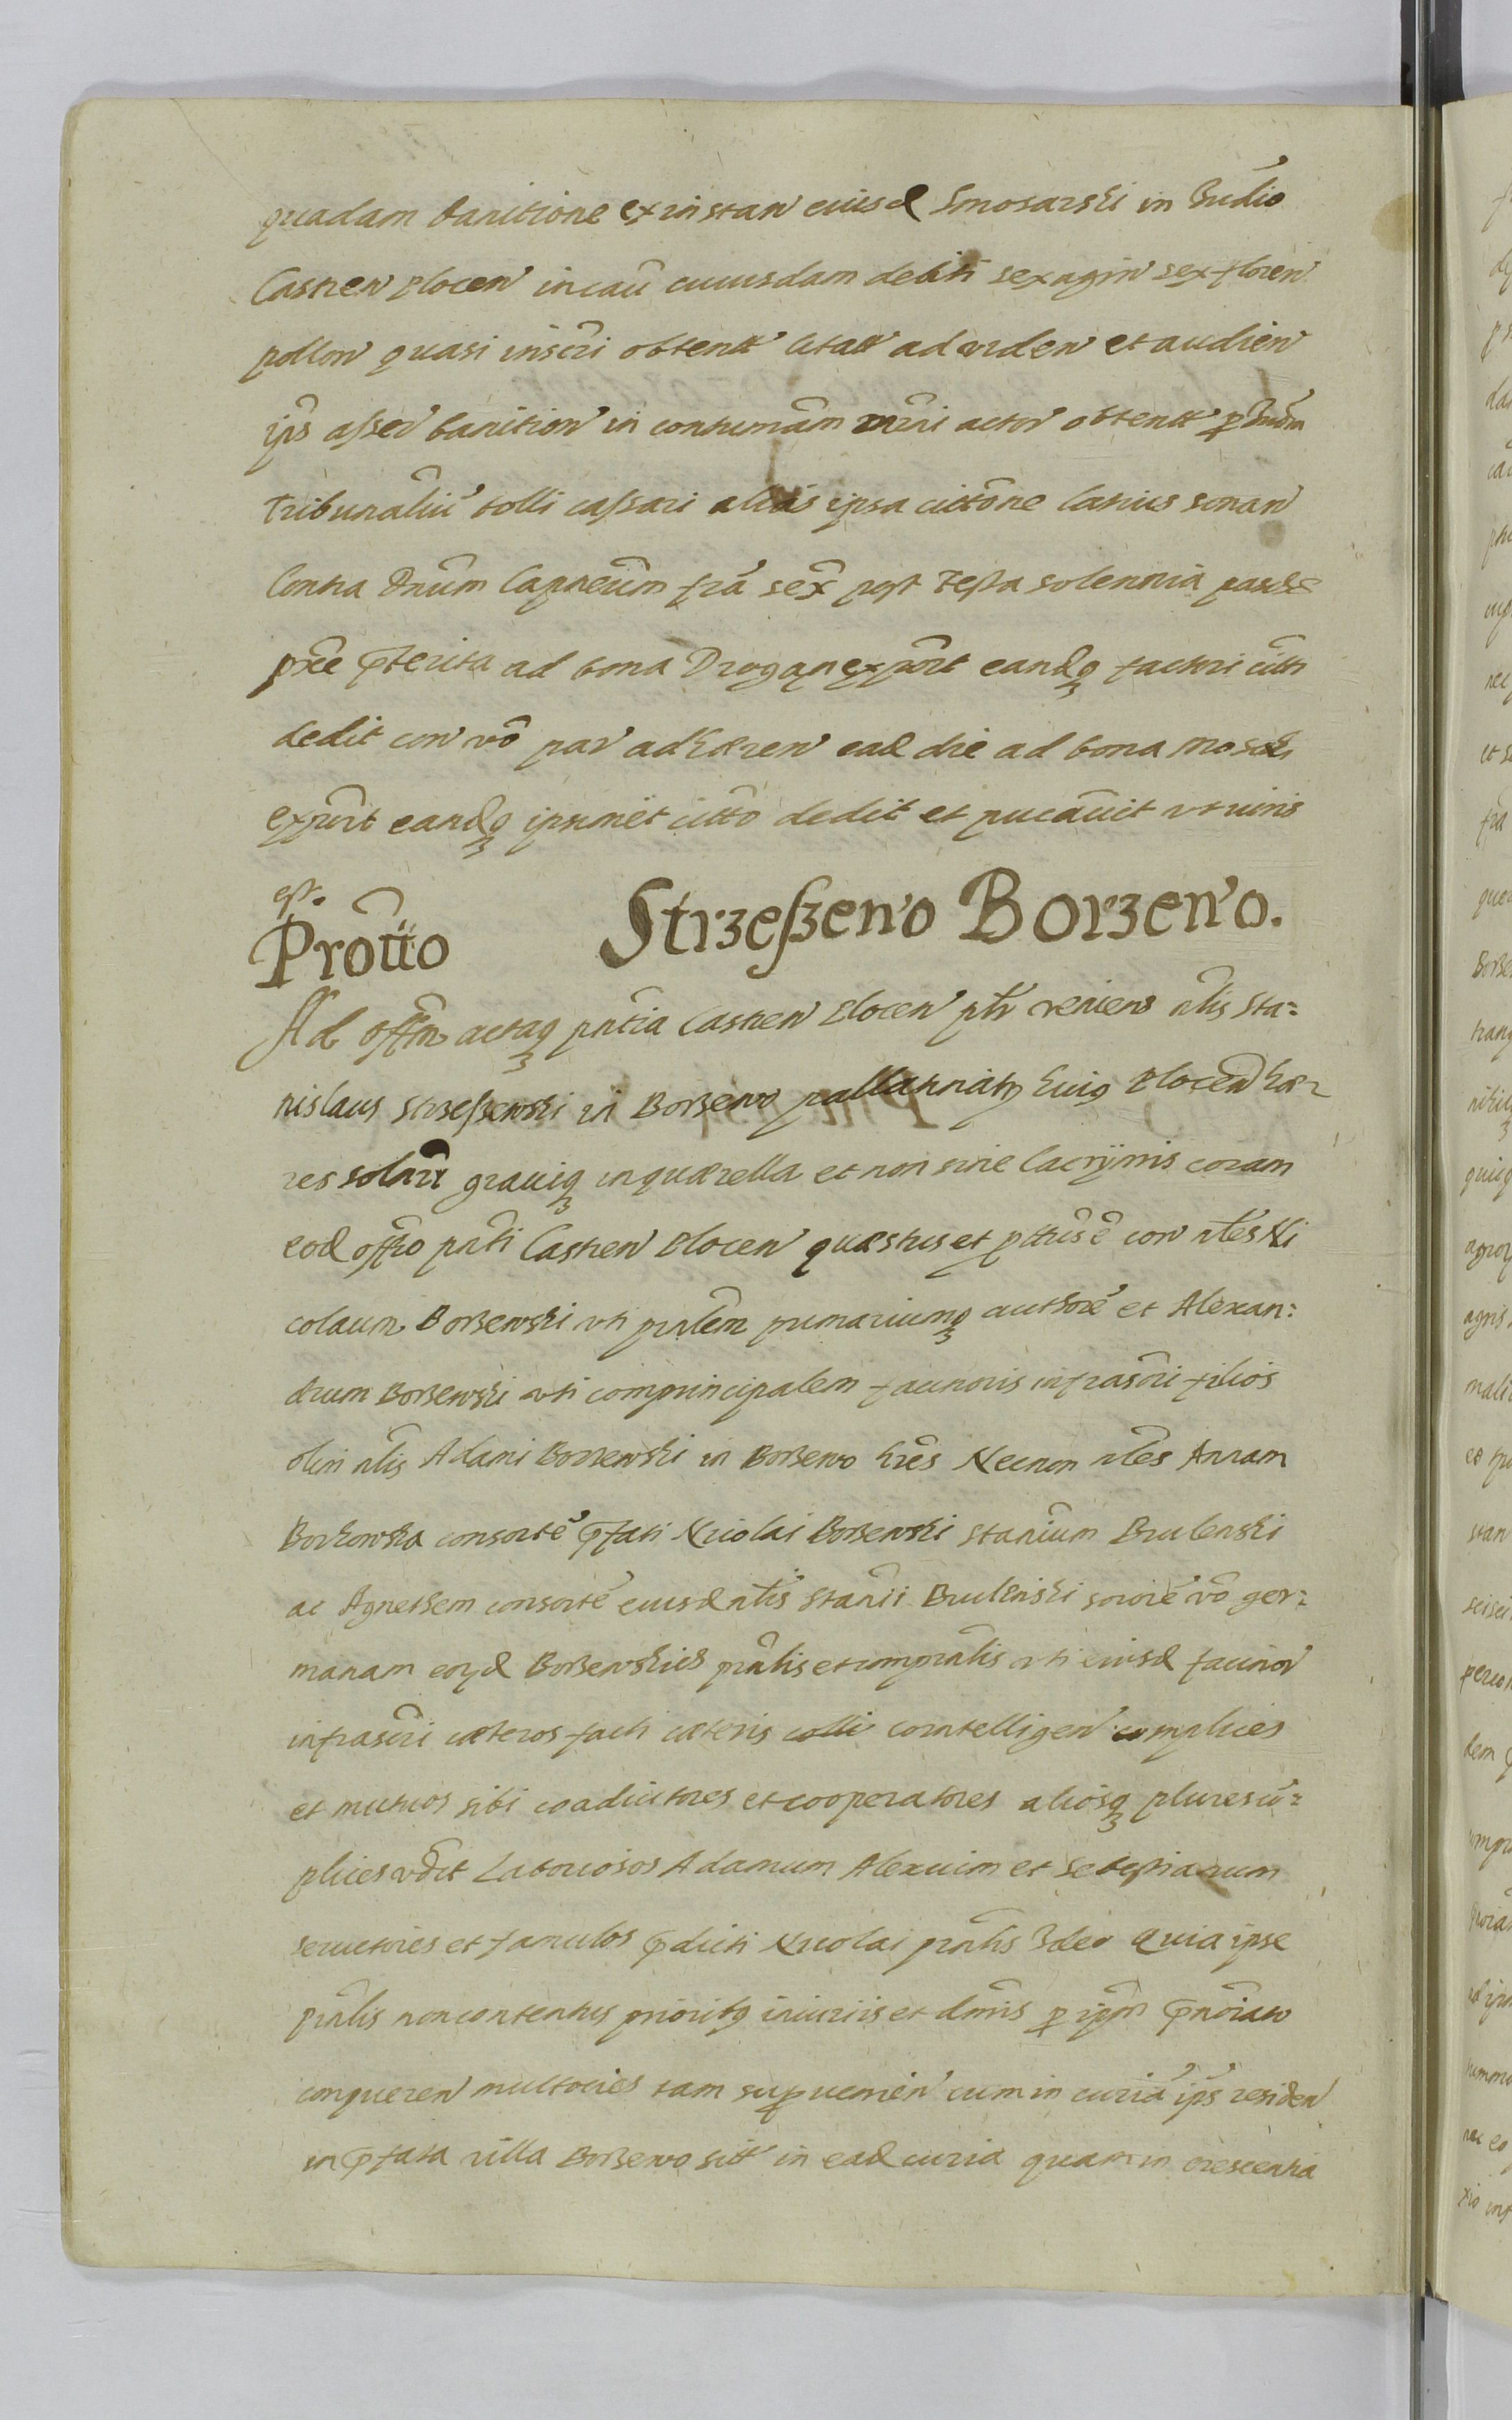 quadam banitione ex instan eiusd Smosarski in Iudio
Castren plocen in cau cuiusdam debiti sexagin sex floren
pollon quasi inscri obtent citat ad viden et audien
ips asser banition in contumam mini actor obtent p Iudm
Tribunaliu tolli cassari alias ipsa cittone latius sonan
Contra Dnum Capneum fra sex post Festa solennia
pterita ad bona Drogan export eandq factori citti
dedit con vo par adhæren ead die ad bona
export eandq ipsimet citto dedit et pucauit ut iuris
est.
Protto Strzeszewo Borzewo.
Ad offm actaq pntia Castren Plocen plr veniens nlis Sta=
nislaus Strzeszewski in Borzewo pallatinatq huiq Plocen hæ=
res solari grauiq in quærella et non sine lacrymis coram
eod offio pnti Castren Plocen quæstus et pttus e con nles Ni
colaum Borzewski uti pnlem primariumq authore et Alexan=
drum Borzewski uti comprincipalem facinoris infrascri filios
olim nlis Adami Borzewski in Borzewo hres Necnon nles Annam
Borkowska consorte pfati Nicolai Borzewski Stanium Brulenski
ac Agnethem consorte eiusd nlis Stanii Brulinski sorore vo ger=
manam eord Borzewskich pnlis et compnlis uti eiusd facinor
infrascri cæteros facti cæteris colli cointelligen complices
et mutuos sibi coadiutores et cooperatores aliosq plures co=
plices vdlt Laboriosos Adamum Alexium et Sebestianum
seruitores et famulos pdicti Nicolai pnlis Ideo Quia ipse
pnlis non contentus prioribq iniuriis et dmis p ipm pnoiato
conqueren multocies tam superuenien cum in curia ips residen
in pfata villa Borzewo sitt in ead curia quam in crescentia